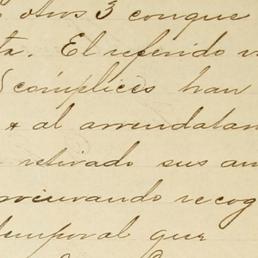 otros 3 conque
ta. El referido
complices han
al arrendatan
retirado sus
procurando recog
temporal que